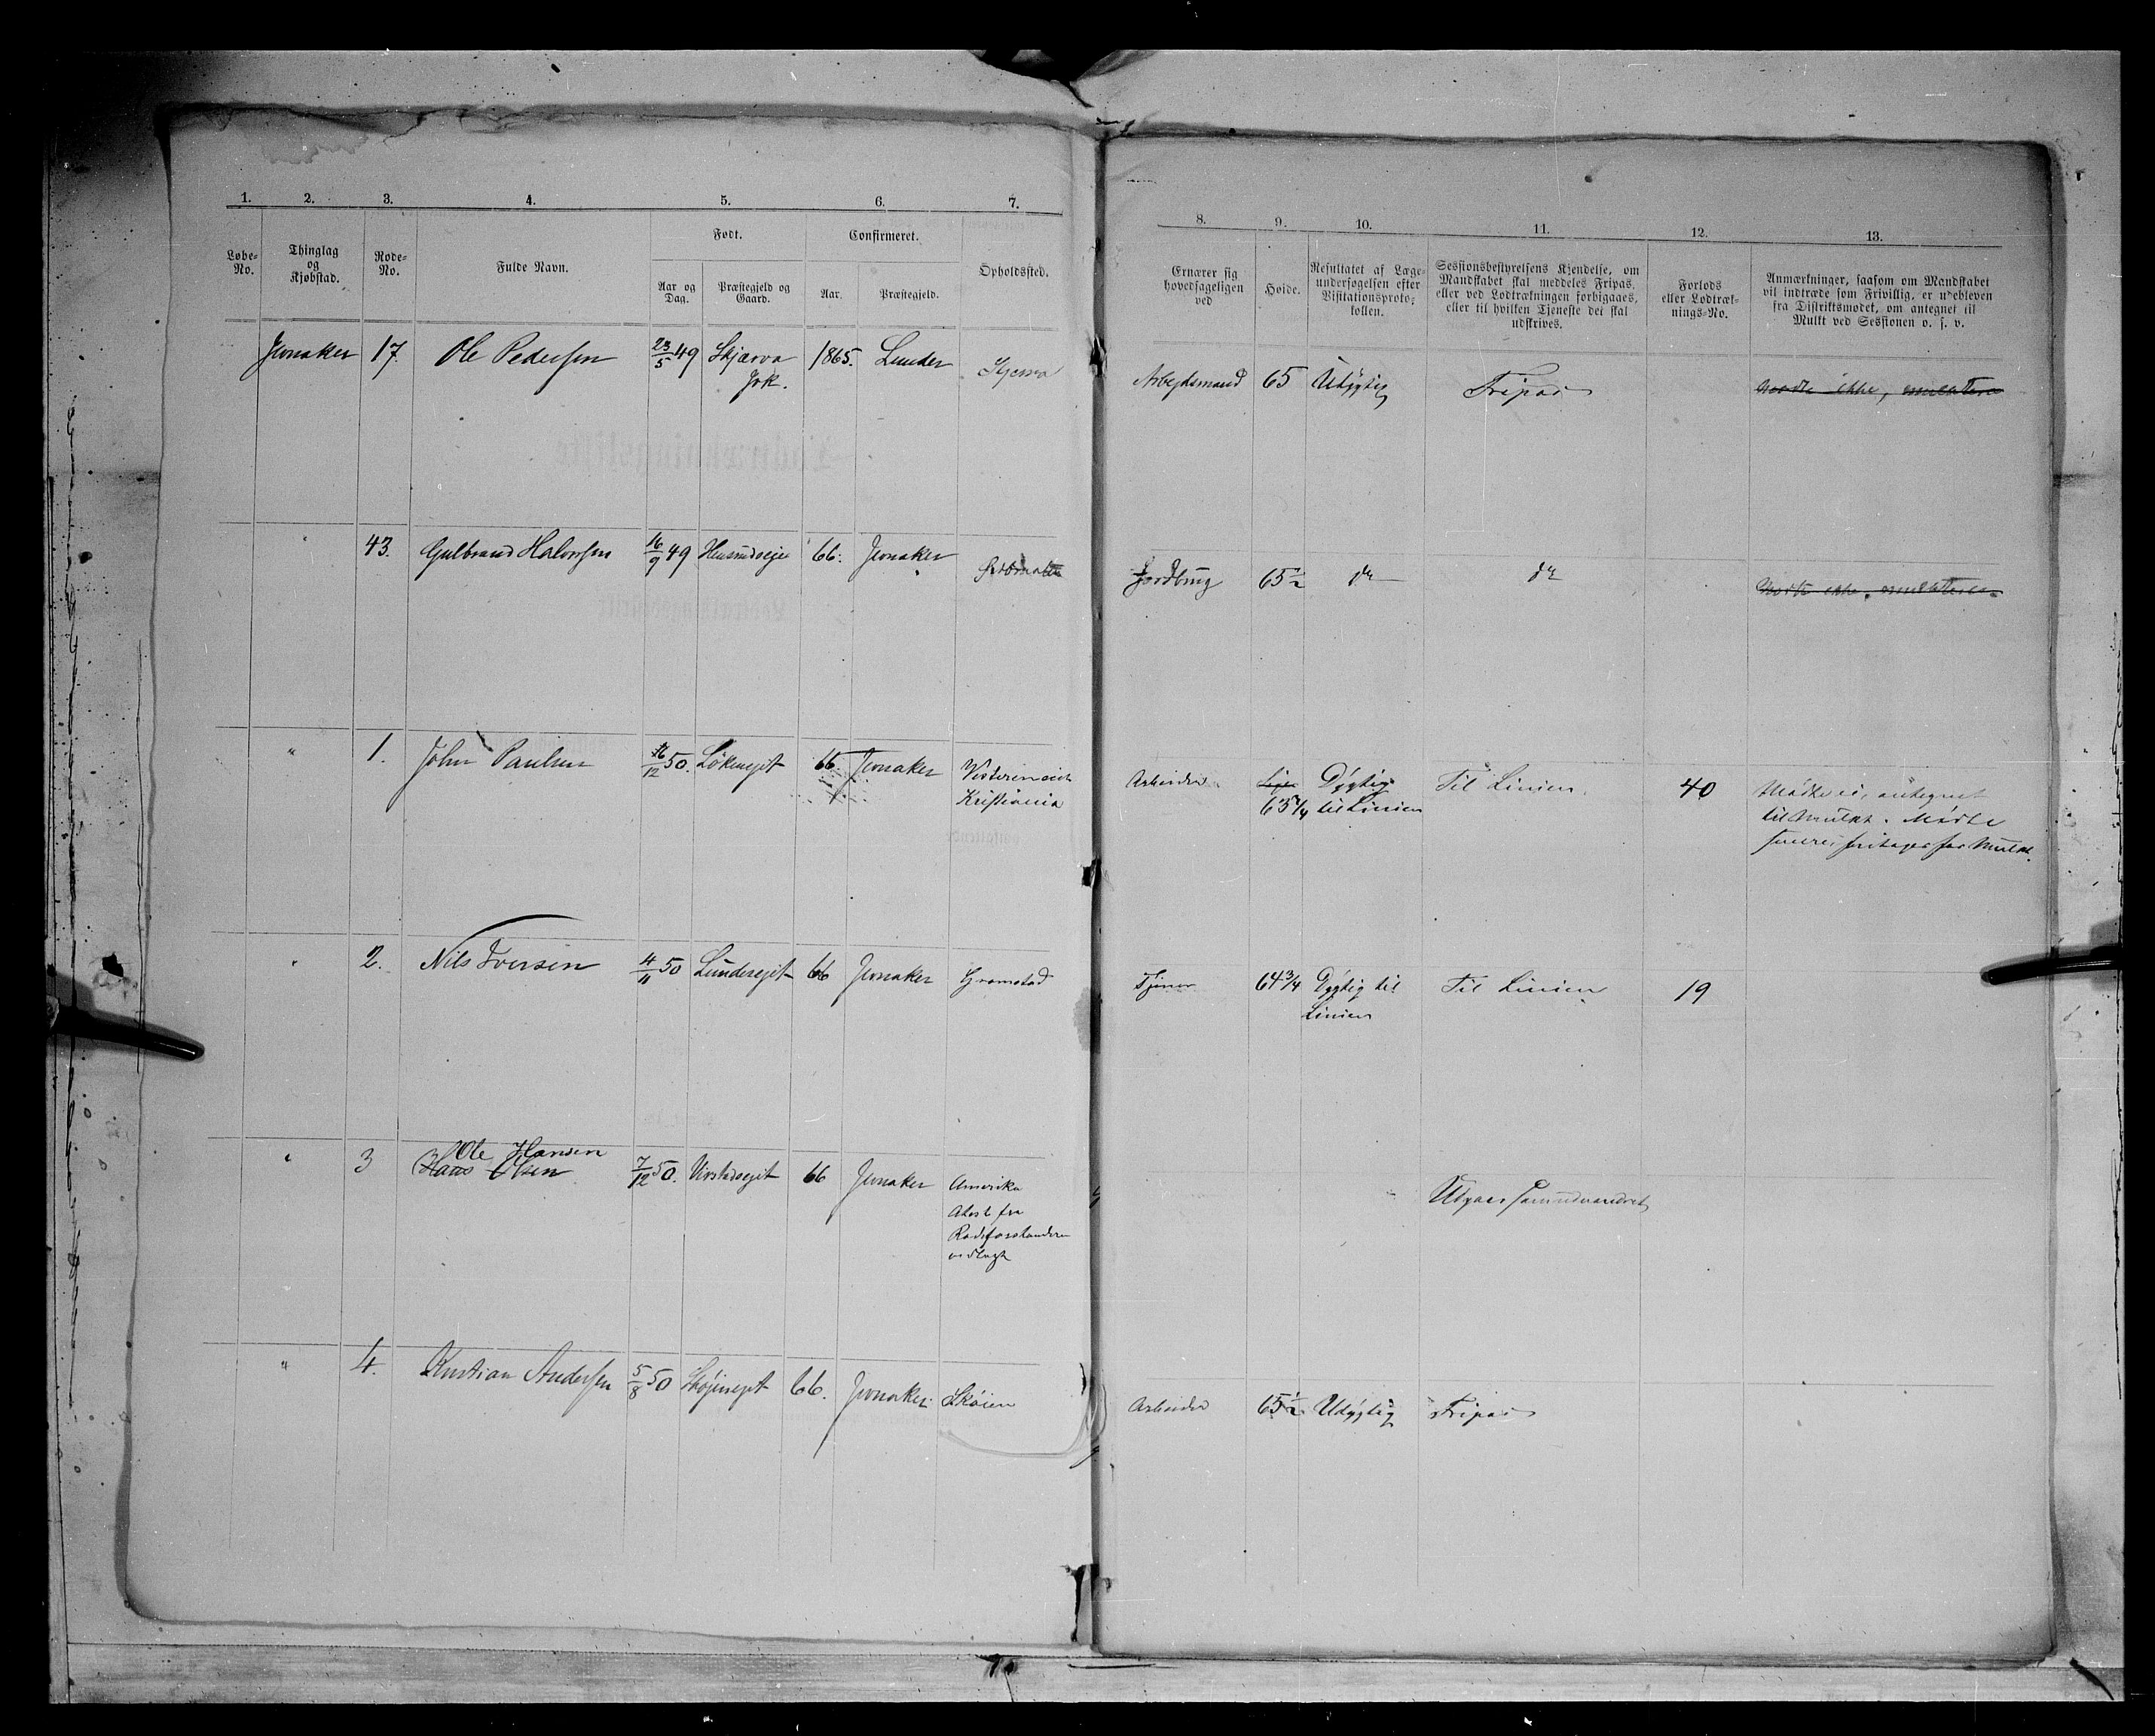 1. 2. 3. 4. 5. 6. 7.
Løbe-No. Thinglag og Kjøbstad. Rode-No. Fulde Navn. Født. Confirmeret. Opholdssted.
Aar og Dag. Præstegjeld og Gaard. Aar. Præstegjeld.
Jevnaker 17. Ole Pedersen 23/5 49 Skjærva 1865. Lunder
43. Gulbrand Halvorsen 16/9 49 66. Jevnaker
" 1. John Paulsen 16/12 50. Løkenejet 66 Jevnaker
Kristiania
" 2. Nils Iversen 4/11 50 Lundeejet 66 Jevnaker Gramstad
Ole Hansen
" 3 Hans Olsen 7/12 50. 66 Jevnaker Amerika
Atest fra
Rodeforstanderen
vedlagt
" 4. Kristian Andersen 5/8 50 Skøjenejet 66. Jevnaker Skøien
8. 9. 10. 11. 12. 13.
Ernærer sig hovedsageligen ved
Høide.
Resultatet af Læge-
undersøgelsen efter
Visitationsproto-
kollen.
Sessionsbestyrelsens Kjendelse, om
Mandskabet skal meddeles Fripas,
eller ved Lodtrækningen forbigaaes,
eller til hvilken Tjeneste det skal
udskrives.
Forlods
eller Lodtræk-
nings-No.
Anmærkninger, saasom om Mandskabet
vil indtræde som Frivillig, er udebleven
fra Distriktsmødet, om antegnet til
Mulkt ved Sessionen o. s. v.
Arbejdsmand 65 Udygtig Fripas Mødte ikke, mulkteres
Jordbrug 65½ do do Mødte ikke, mulkteres.
Arbeider 63¾ Dygtig til Linien Til Linien 40 Mødte ei, antegnet
til Mulkt. Mødte
senere, fritages for Mulkt.
Tjener 64¾ Dygtig til Linien Til Linien 19
Udgaar som udvandret
Arbeider 65½ Udygtig Fripas